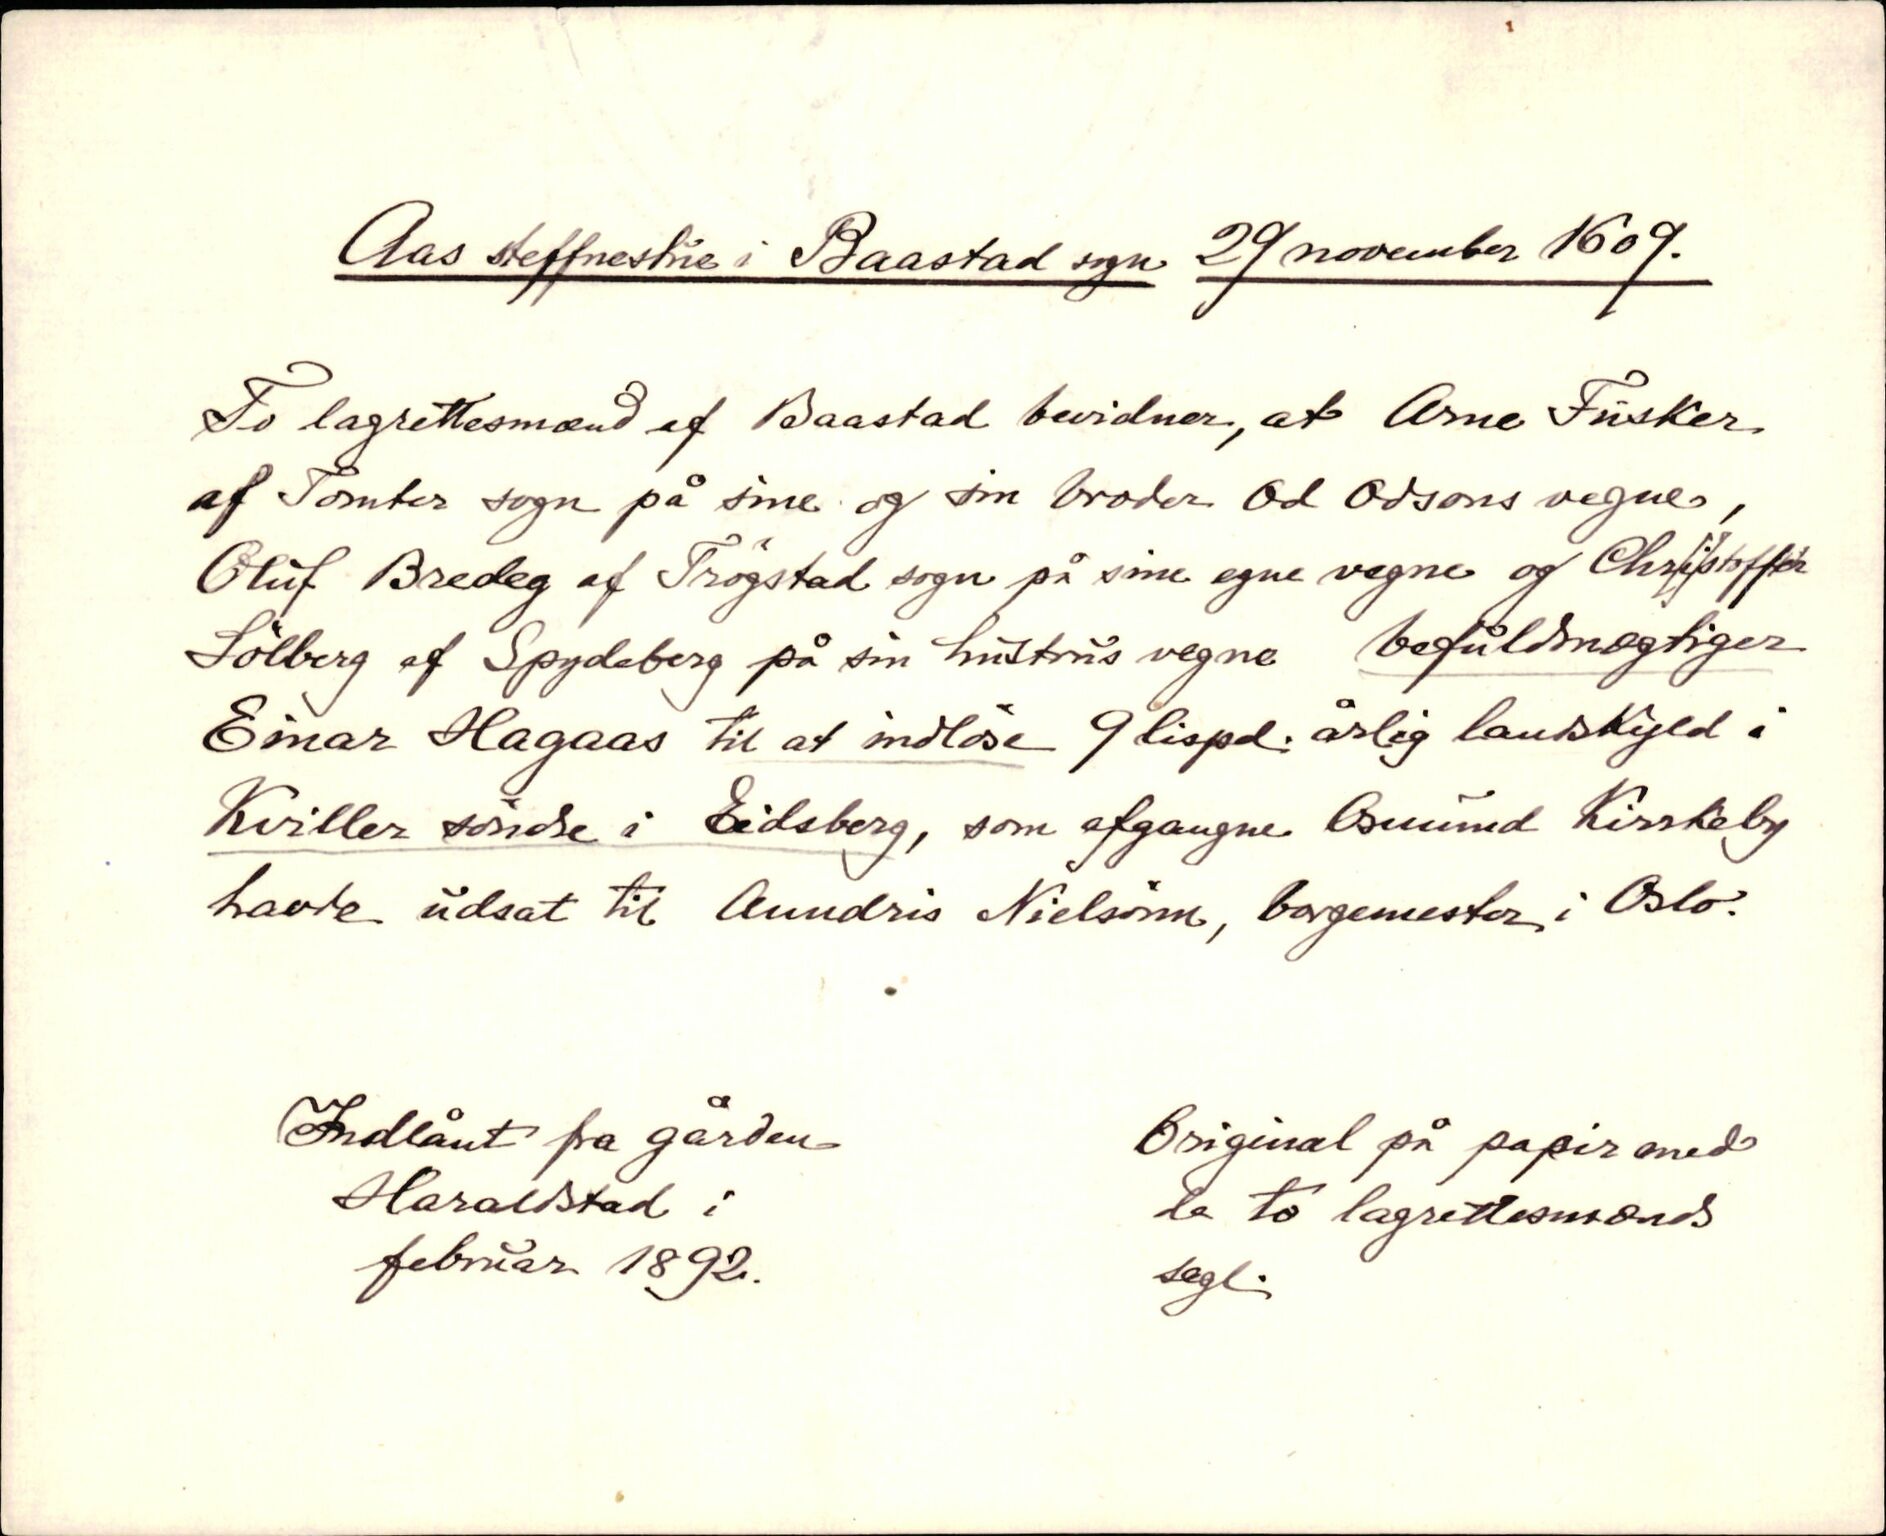 Aas steffnestue i Baastad sogn 29 november 1609.
To lagrettesmænd af Baastad bevidner, at Arne Fusker
af Tomter sogn på sine og sin broder Od Odsons vegne,
Oluf Bredeg af Trögstad sogn på sine egne vegne og Christoffer
Sölberg af Spydeberg på sin hustrus vegne befuldmægtiger
Einar Hagaas til at indlöse 9 lispd. årlig landskyld i
Kviller söndre i Eidsberg, som afgangne Osmund Kirrkeby
havde udsat til Aunndris Nielsönn, borgemester i Oslo.
Indlånt fra gården
Haraldstad i
februar 1892.
Original på papir med
de to lagrettesmænds
segl.